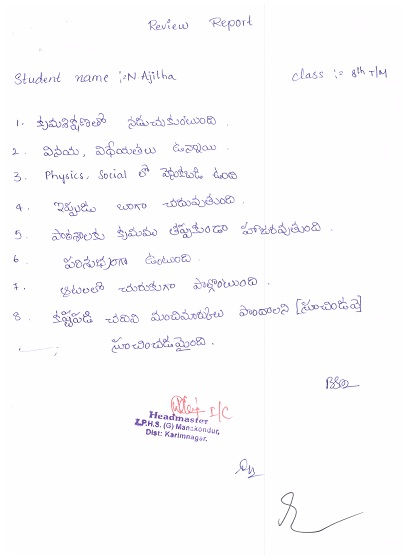 Review Report
Student name :- N. Ajitha
class :- 8th T/M
1. క్రమశిక్షణతో నడుచుకుంటుంది.
2. వినయ, విధేయతలు ఉన్నాయి.
3. Physics, Social లో వెనుకబడి ఉంది
4. ఇప్పుడు బాగా చదువుతుంది.
5. పాఠశాలకు క్రమము తప్పకుండా హాజరవుతుంది.
6. పరిశుభ్రంగా ఉంటుంది.
7. ఆటలలో చురుకుగా పాల్గొంటుంది.
8. కష్టపడి చదివి మంచిమార్కులు పొందాలని [సూచించడ
సూచించడమైంది.
I/C
Headmaster
Z.P.H.S. (G) Manakondur,
Dist: Karimnagar.